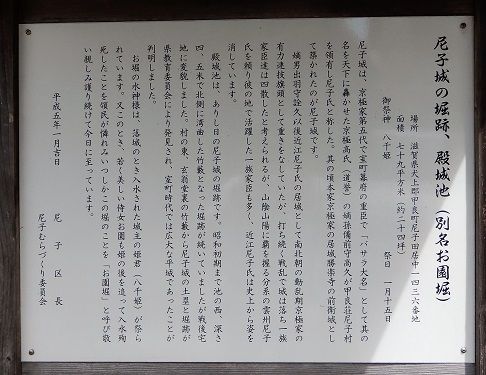 尼子城の堀跡、殿城池（別名お園堀）
場所　滋賀県犬上郡甲良町尼子田居中一四三六番地
面積　七十九平方米（約二十四坪）
御祭神　八千姫　　祭日　一月十五日
尼子城は、京極家第五代で室町幕府の重臣で「バサラ大名」として其の
名を天下に轟かせた京極高氏（道誉）の嫡孫備前守高久が甲良荘尼子村
を領有し尼子氏と称した。其の頃本家京極家の居城勝楽寺の前衛城とし
て築かれたのが尼子城です。
嫡男出羽守詮久以後近江尼子氏の居城として南北朝の動乱期京極家の
有力連技旗頭として重きをなしていたが、打ち続く戦乱で城は落ち一族
家臣達は四散したと考えられるが、山陰山陽に覇を握る分系の雲州尼子
氏を頼り彼の地で活躍した一族家臣も多く、近江尼子氏は史上から姿を
消しています。
殿城池は、ありし日の尼子城の堀跡です。昭和初期まで池の西、深さ
四、五米で北側に湾曲した竹藪となった堀跡が続いていましたが戦後宅
地に変貌しました。村の東、玄翁堂裏の竹藪から尼子城の土塁と堀跡が
県教育委員会により発見され、室町時代では広大な平城であったことが
判明しました。
お堀の水神様は、落城のとき入水された城主の姫君（八千姫）が祭ら
れています。又このとき、若く美しい侍女お園も姫の後を追って入水殉
死したことを領民が憐れみいつしかこの堀のことを「お園堀」と呼び敬
い親しみ護り続けて今日に至っています。
平成五年一月吉日
尼子区長
尼子むらづくり委員会